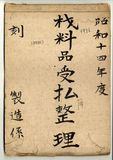 昭和十四年度
材料品受払整理
刻　製造係